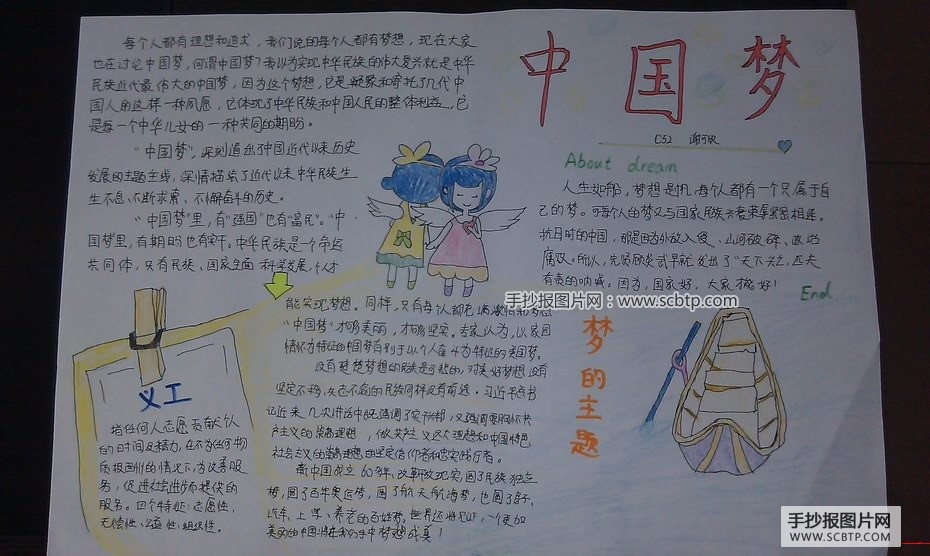 中国梦
C52
每个人都有理想和追求，我们说的每个人都有梦想，现在大家
也在讨论中国梦，何谓中国梦？我认为实现中华民族的伟大复兴就是中华
民族近代最伟大的中国梦，因为这个梦想，它是凝聚和寄托了几代中
国人的这样一种夙愿，它体现了中华民族和中国人民的整体利益，它
是每一个中华儿女的一种共同的期盼。
“中国梦”，深刻道出了中国近代以来历史
发展的主题主线，深情描绘了近代以来中华民族生
生不息、不断求索、不懈奋斗的历史。
“中国梦”里，有“强国”也有“富民”。“中
国梦”里，有期盼也有实干。中华民族是一个命运
共同体，只有民族、国家全面科学发展，个人才
能实现梦想。同样，只有每个人都
“中国梦”才够美丽，才够坚实。专家认为，以家国
情怀为特征的中国梦有别于以个人奋斗为特征的美国梦。
没有
坚定不移、矢志不渝的民族同样没有前途。习近平总书
记近来几次讲话中既强调了实干兴邦，又强调要胸怀共
产主义的崇高理想，做共产主义远大理想和中国特色
社会主义的
新中国成立60多年，改革开放现实，圆了民族独立
梦，圆了百年奥运梦，圆了航天航海梦，也圆了
汽车、上学、养老的百姓梦。世界还将见证，一个更加
美丽的中国将在我们手中梦想成真！
About dream
人生如船，梦想是帆，每个人都有一个只属于自
己的梦。
抗日时的中国，那是因为外敌入侵、山河破碎、政治
腐败。所以，先贤顾炎武早就发出了“天下兴亡，匹夫
有责的呐喊。因为，国家好，大家才能好！
End
梦的主题
义工
指任何人志愿贡献个人
的时间及精力，在不为任何物
质报酬的情况下，为改善服
务，促进社会进步而提供的
服务。四个特征：志愿性、
无偿性、公益性、组织性。
手抄报图片网：www.scbtp.com
手抄报图片网
WWW.SCBTP.COM